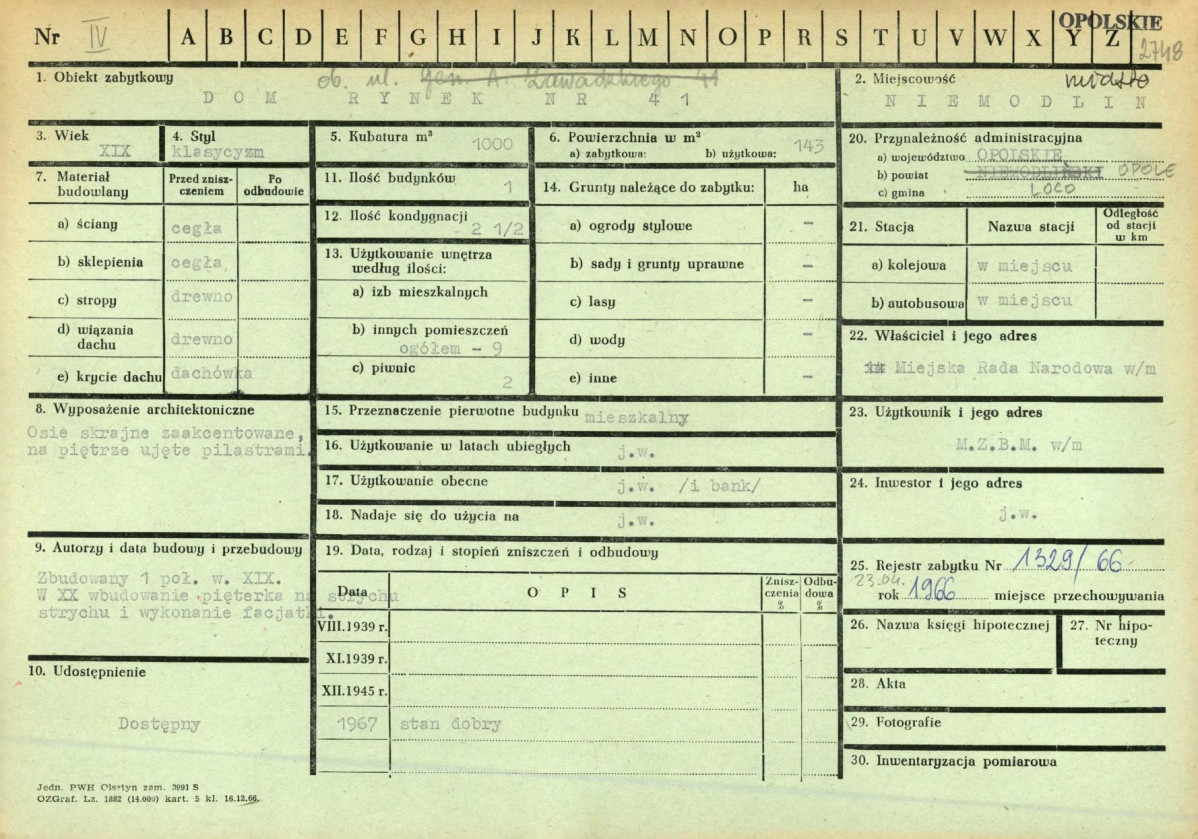 Nr IV A B C D E F G H I J K L M N O P R S T U V W X Y Z OPOLSKIE
2748
1. Obiekt zabytkowy ob. ul. Gen. A. Zawadzkiego 41
DOM RYNEK NR 41
2. Miejscowość miasto
NIEMODLIN
3. Wiek
XIX
4. Styl
klasycyzm
5. Kubatura m³ 1000
6. Powierzchnia w m²
a) zabytkowa: b) użytkowa: 143
7. Materiał budowlany
Przed zniszczeniem
Po odbudowie
a) ściany cegła
b) sklepienia cegła
c) stropy drewno
d) wiązania dachu drewno
e) krycie dachu dachówka
8. Wyposażenie architektoniczne
Osie skrajne zaakcentowane,
na piętrze ujęte pilastrami.
9. Autorzy i data budowy i przebudowy
Zbudowany 1 poł. w. XIX.
W XX wbudowanie pięterka na strychu
strychu i wykonanie facjatki.
10. Udostępnienie
Dostępny
11. Ilość budynków 1
12. Ilość kondygnacji
2 1/2
13. Użytkowanie wnętrza
według ilości:
a) izb mieszkalnych
b) innych pomieszczeń
ogółem - 9
c) piwnic
2
14. Grunty należące do zabytku: ha
a) ogrody stylowe -
b) sady i grunty uprawne -
c) lasy -
d) wody
e) inne -
15. Przeznaczenie pierwotne budynku mieszkalny
16. Użytkowanie w latach ubiegłych j.w.
17. Użytkowanie obecne j.w. /i bank/
18. Nadaje się do użycia na j.w.
19. Data, rodzaj i stopień zniszczeń i odbudowy
Data OPIS Zniszczenia % Odbudowa %
VIII.1939 r.
XI.1939 r.
XII.1945 r.
1967 stan dobry
20. Przynależność administracyjna
a) województwo OPOLSKIE
b) powiat NIEMODLIŃSKI OPOLE
c) gmina LOCO
21. Stacja Nazwa stacji Odległość od stacji w km
a) kolejowa w miejscu
b) autobusowa w miejscu
22. Właściciel i jego adres
Miejska Rada Narodowa w/m
23. Użytkownik i jego adres
M.Z.B.M. w/m
24. Inwestor i jego adres
j.w.
25. Rejestr zabytku Nr 1329/66
23.04.
rok 1966 miejsce przechowywania
26. Nazwa księgi hipotecznej
27. Nr hipoteczny
28. Akta
29. Fotografie
30. Inwentaryzacja pomiarowa
Jedn. PWH Olsztyn zam. 3991 S
OZGraf. Lz. 1882 (14.000) kart. 5 kl. 16.12.66.